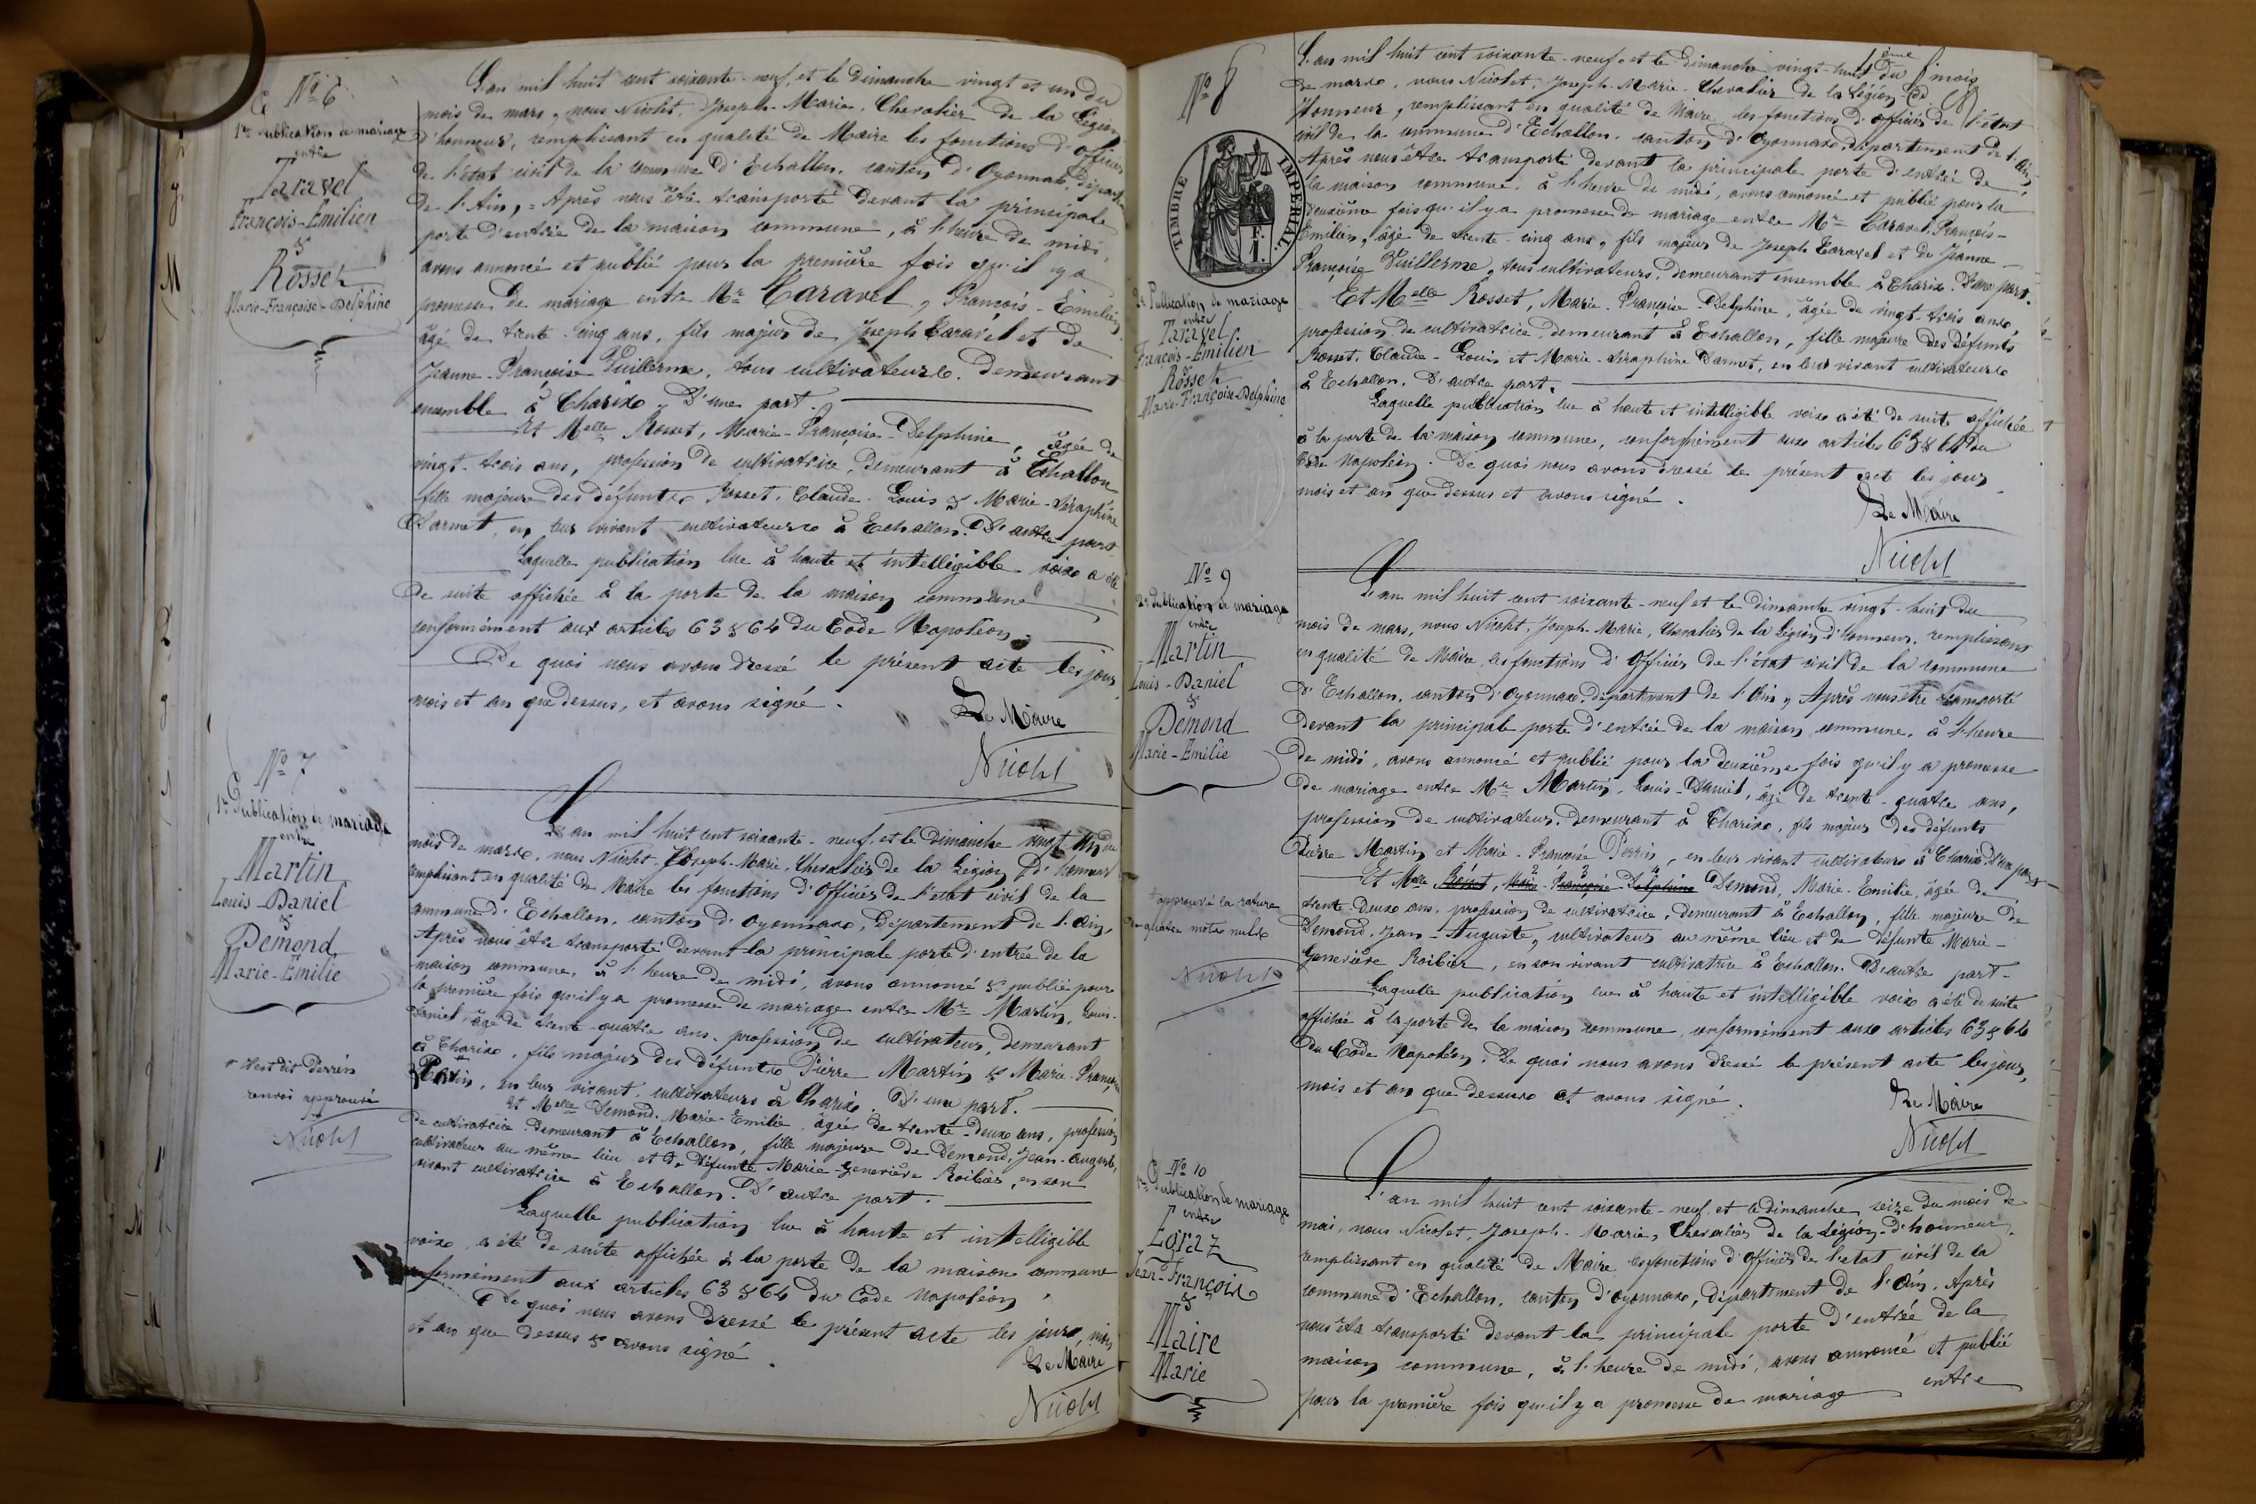 Nº 6
1re Publication de mariage
entre
Taravel
François-Emilien
&
Rosset
Marie-Françoise-Delphine
L'an mil huit cent soixante-neuf, et le Dimanche vingt et un du
mois de mars, nous Nicolet, Joseph-Marie, Chevalier de la Légion
d'honneur, remplissant en qualité de Maire les fonctions d'officier
de l'état civil de la commune d'Echallon, canton d'Oyonnax, départ
de l'Ain, = Après nous être transporté devant la principale
porte d'entrée de la maison commune, à l'heure de midi,
avons annoncé et publié pour la première fois qu'il y a
promesse de mariage entre Mr Taravel, François-Emilien,
âgé de trente-cinq ans, fils majeur de Joseph Taravel et de
Jeanne-Françoise Vuillerme, tous cultivateurs, demeurant
ensemble à Charix, D'une part.
Et Melle Rosset, Marie-Françoise-Delphine, âgée de
vingt-trois ans, profession de cultivatrice, demeurant à Echallon
fille majeure des défunts Rosset, Claude-Louis & Marie-Séraphine
Darmet, en leur vivant cultivateurs à Echallon. D'autre part
Laquelle publication lue à haute et intelligible voix a été
de suite affichée à la porte de la maison commune
conformément aux articles 63 & 64 du Code Napoléon.
De quoi nous avons dressé le présent acte les jour,
mois et an que dessus, et avons signé.
Le Maire
Nicolet
Nº 7
1re Publication de mariage
entre
Martin
Louis-Daniel
&
Demond
Marie-Emilie
L'an mil huit cent soixante-neuf, et le Dimanche vingt un du
mois de mars, nous Nicolet, Joseph-Marie, Chevalier de la Légion d'honneur
remplissant en qualité de Maire les fonctions d'Officier de l'état civil de la
commune d'Echallon, canton d'Oyonnax, Département de l'Ain,
Après nous être transporté devant la principale porte d'entrée de la
maison commune, à l'heure de midi, avons annoncé & publié pour
la première fois qu'il y a promesse de mariage entre Mr Martin, Louis-
Daniel, âgé de trente-quatre ans, profession de cultivateur, demeurant
à Charix, fils majeur des défunts Pierre Martin & Marie-Françoise
en leur vivant cultivateurs à Charix. D'une part.
+ C'est dit Perrin
renvoi approuvé
Nicolet
Et Melle Demond, Marie-Emilie, âgée de trente-deux ans, profession
de cultivatrice demeurant à Echallon, fille majeure de Demond, Jean-Auguste,
cultivateur au même lieu et de défunte Marie-Geneviève Roibier, en son
vivant cultivatrice à Echallon. D'autre part.
Laquelle publication lue à haute et intelligible
voix, a été de suite affichée à la porte de la maison commune
conformément aux articles 63 & 64 du Code Napoléon,
De quoi nous avons dressé le présent acte les jour, mois
et an que dessus & avons signé.
Le Maire
Nicolet
Nº 8
TIMBRE IMPÉRIAL
2e Publication de mariage
entre
Taravel
François-Emilien
&
Rosset
Marie-Françoise-Delphine
L'an mil huit cent soixante-neuf, et le Dimanche vingt-huit du mois
de mars, nous Nicolet, Joseph-Marie, Chevalier de la Légion d'
Honneur, remplissant en qualité de Maire, les fonctions d'officier de l'état
civil de la commune d'Echallon, canton d'Oyonnax, département de l'Ain,
Après nous être transporté devant la principale porte d'entrée de
la maison commune, à l'heure de midi, avons annoncé et publié pour la
deuxième fois qu'il y a promesse de mariage entre Mr Taravel, François-
Emilien, âgé de trente-cinq ans, fils majeur de Joseph Taravel et de Jeanne-
Françoise Vuillerme, tous cultivateurs, demeurant ensemble à Charix. D'une part.
Et Melle Rosset, Marie-Françoise-Delphine, âgée de vingt-trois ans,
profession de cultivatrice, demeurant à Echallon, fille majeure des défunts
Rosset, Claude-Louis et Marie-Séraphine Darmet, en leur vivant cultivateurs
à Echallon. D'autre part.
Laquelle publication lue à haute et intelligible voix a été de suite affichée
à la porte de la maison commune, conformément aux articles 63 & 64 du
Code Napoléon. De quoi nous avons dressé le présent acte les jour
mois et an que dessus et avons signé.
Le Maire
Nicolet
Nº 9
2e Publication de mariage
entre
Martin
Louis-Daniel
&
Demond
Marie-Emilie
L'an mil huit cent soixante-neuf et le dimanche vingt-huit du
mois de mars, nous Nicolet, Joseph-Marie, Chevalier de la Légion d'honneur, remplissant
en qualité de Maire les fonctions d'Officier de l'état civil de la commune
d'Echallon, canton d'Oyonnax, département de l'Ain, Après nous être transporté
devant la principale porte d'entrée de la maison commune, à l'heure
de midi, avons annoncé et publié pour la deuxième fois qu'il y a promesse
de mariage entre Mr Martin, Louis-Daniel, âgé de trente-quatre ans,
profession de cultivateur, demeurant à Charix, fils majeur des défunts
Pierre Martin et Marie-Françoise Perrin, en leur vivant cultivateurs à Charix. D'une part
Et Melle Rosset, Marie-Françoise-Delphine Demond, Marie-Emilie, âgée de
trente-deux ans, profession de cultivatrice, demeurant à Echallon, fille majeure de
Demond, Jean-Auguste, cultivateur au même lieu et de défunte Marie-
Geneviève Roibier, en son vivant cultivatrice à Echallon. D'autre part-
+ approuvé la rature
de quatre mots nuls
Nicolet
Laquelle publication lue à haute et intelligible voix a été de suite
affichée à la porte de la maison commune, conformément aux articles 63 & 64
du Code Napoléon. De quoi nous avons dressé le présent acte les jour,
mois et an que dessus et avons signé.
Le Maire
Nicolet
Nº 10
1re Publication de mariage
entre
Egraz
Jean-François
&
Maire
Marie
L'an mil huit cent soixante-neuf, et le dimanche seize du mois de
mai, nous Nicolet, Joseph-Marie, Chevalier de la Légion-d'honneur,
remplissant en qualité de Maire les fonctions d'Officier de l'état civil de la
commune d'Echallon, canton d'Oyonnax, département de l'Ain. Après
nous être transporté devant la principale porte d'entrée de la
maison commune, à l'heure de midi, avons annoncé et publié
pour la première fois qu'il y a promesse de mariage entre